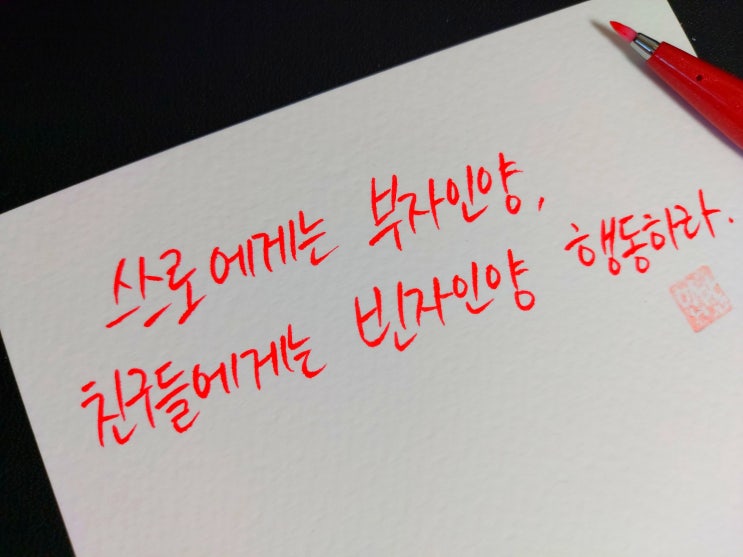 스스로에게는 부자인양,
친구들에게는 빈자인양 행동하라.